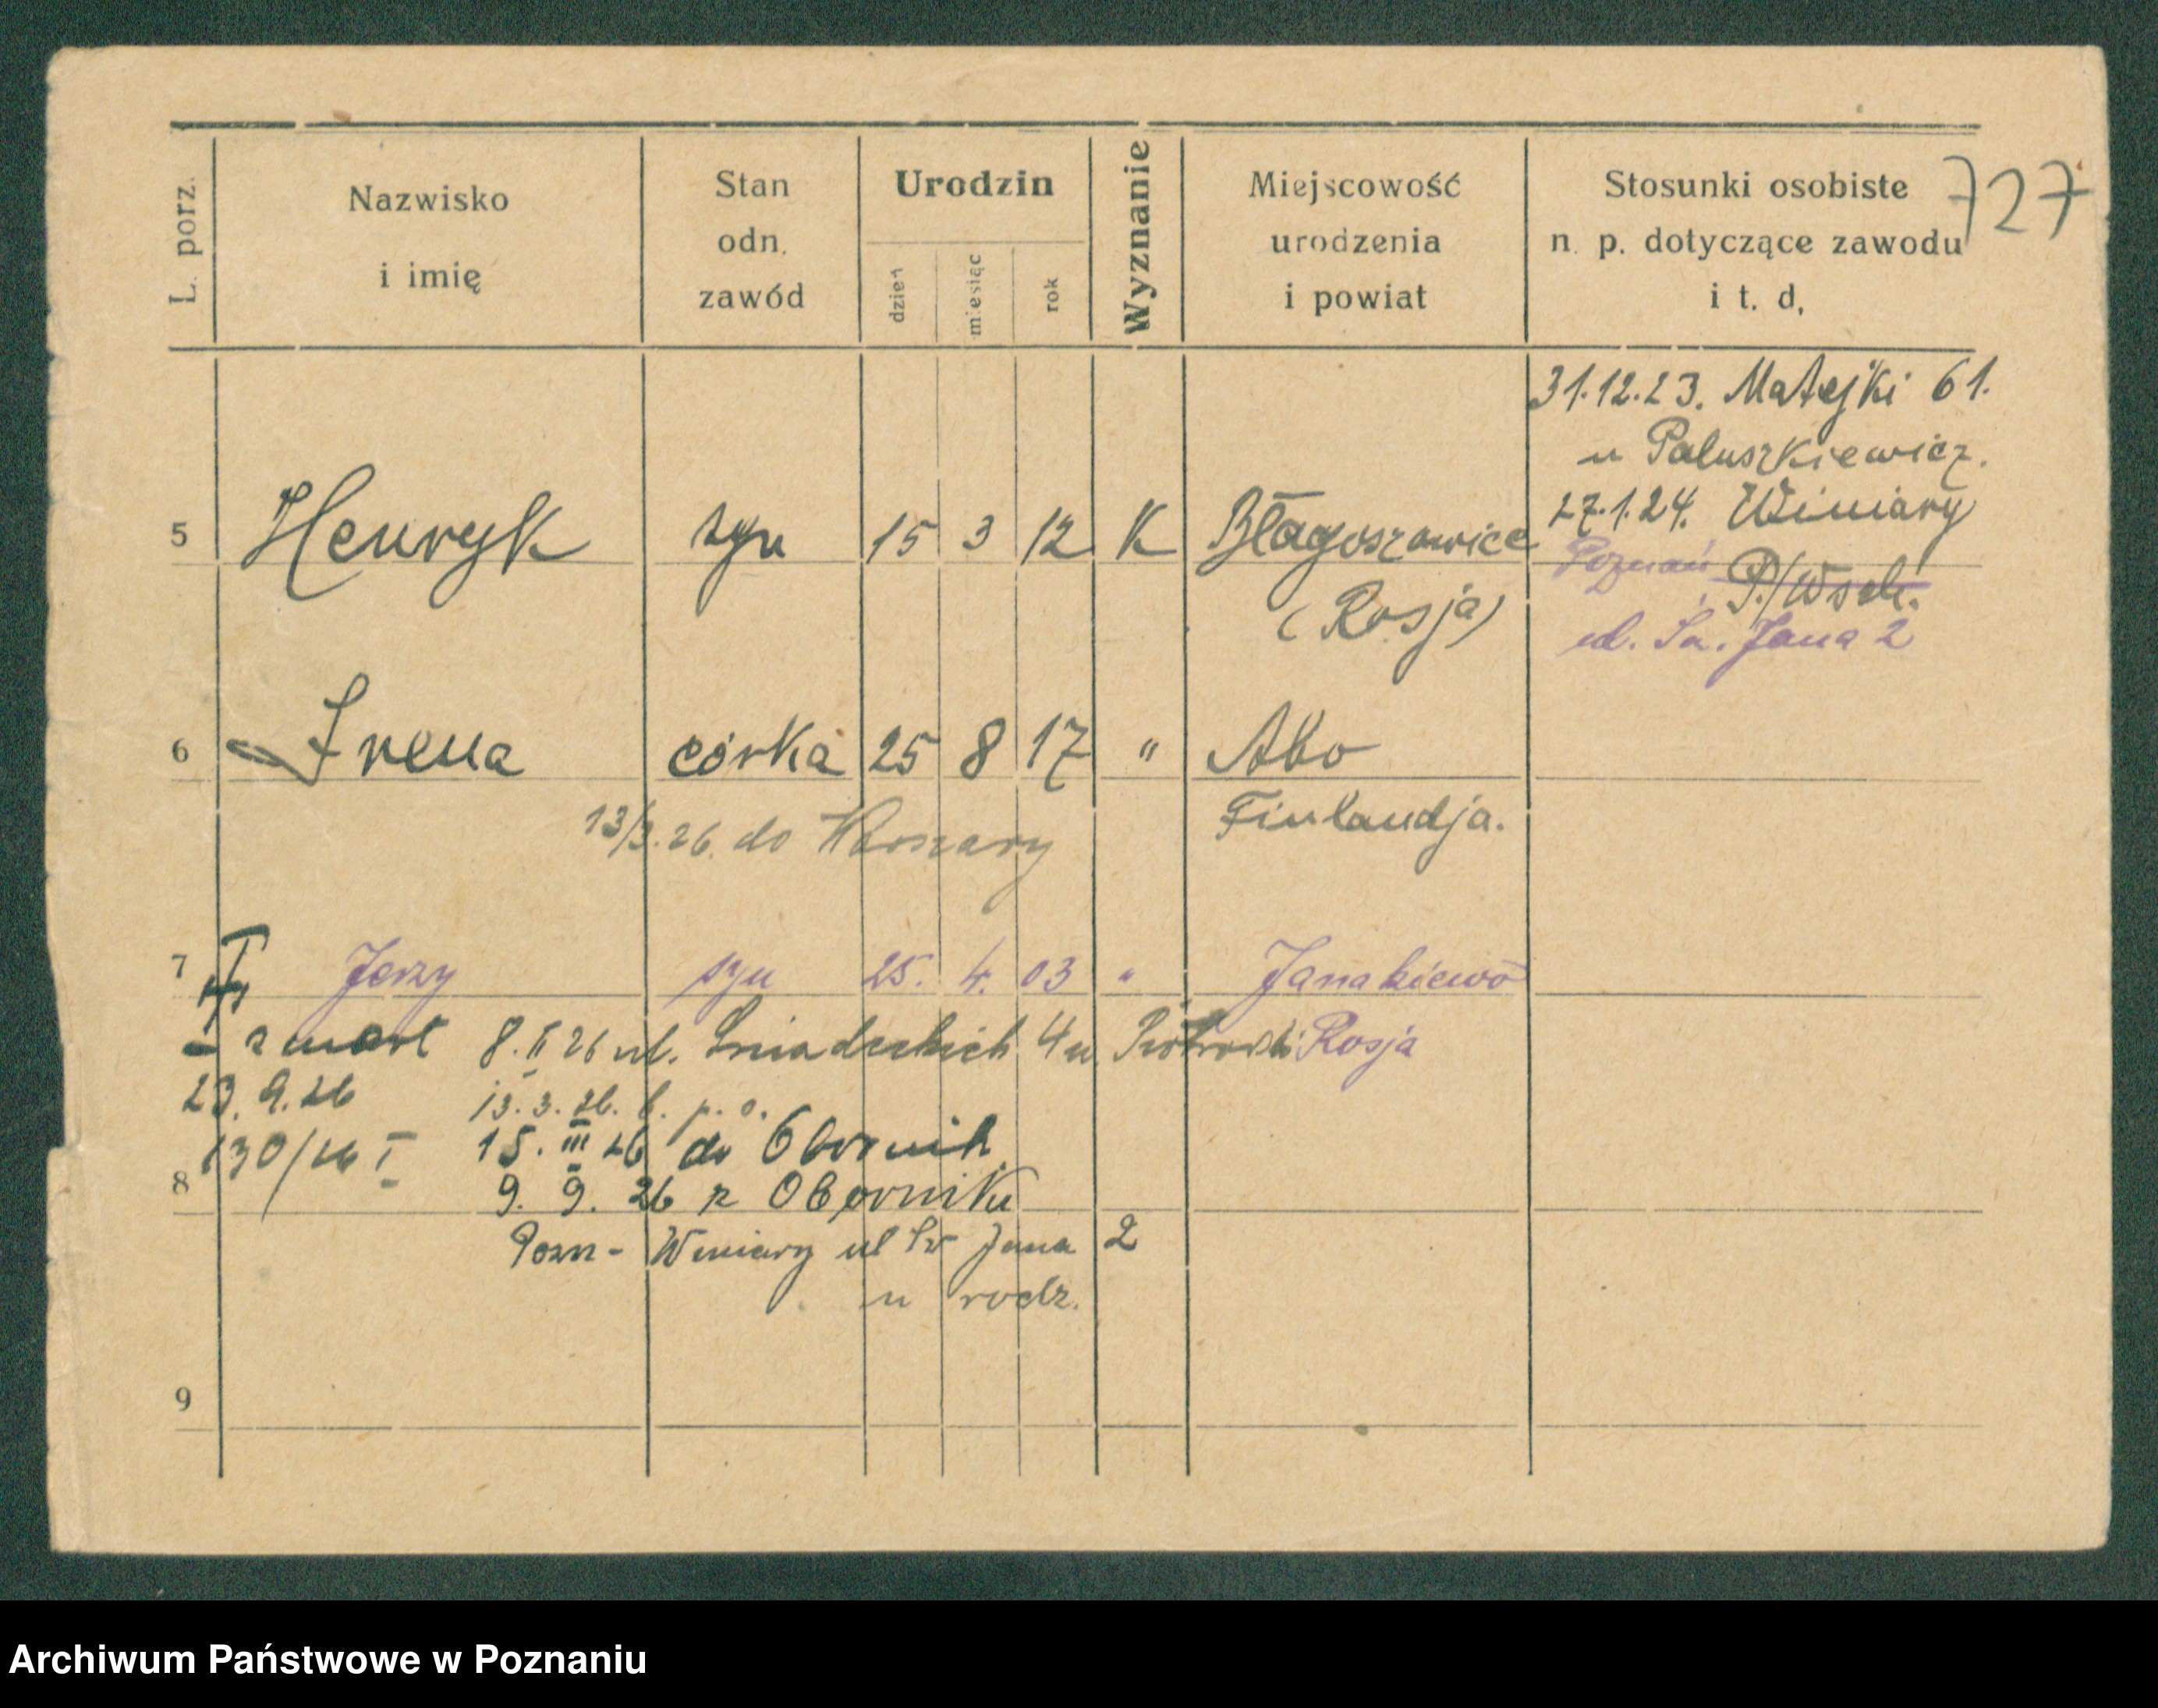 727
L. porz.
Nazwisko
i imię
Stan
odn.
zawód
Urodzin
dzień
miesiąc
rok
Wyznanie
Miejscowość
urodzenia
i powiat
Stosunki osobiste
n. p. dotyczące zawodu
i t. d.
31.12.23. Matejki 61.
u Paluszkiewicz.
27.1.24. Winiary
5 Henryk syn 15 3 12 K Błagoszowice
Poznań P./Wsch.
(Rosja)
ul. Św. Jana 2
6 Irena córka 25 8 17 " Abo
Finlandja.
13/3.26. do
7 Jerzy syn 25. 4. 03 " Janakiewo
Rosja
- zmarł 8.II 26 ul. Śniadeckich 4 u Piotrowski
23.9.26 13.3.26. b. p. o.
130/26 I 15.III 26 do Obornik
8 9. 9. 26 z Obornik
Pozn - Winiary ul Św Jana 2
u rodz.
9
Archiwum Państwowe w Poznaniu